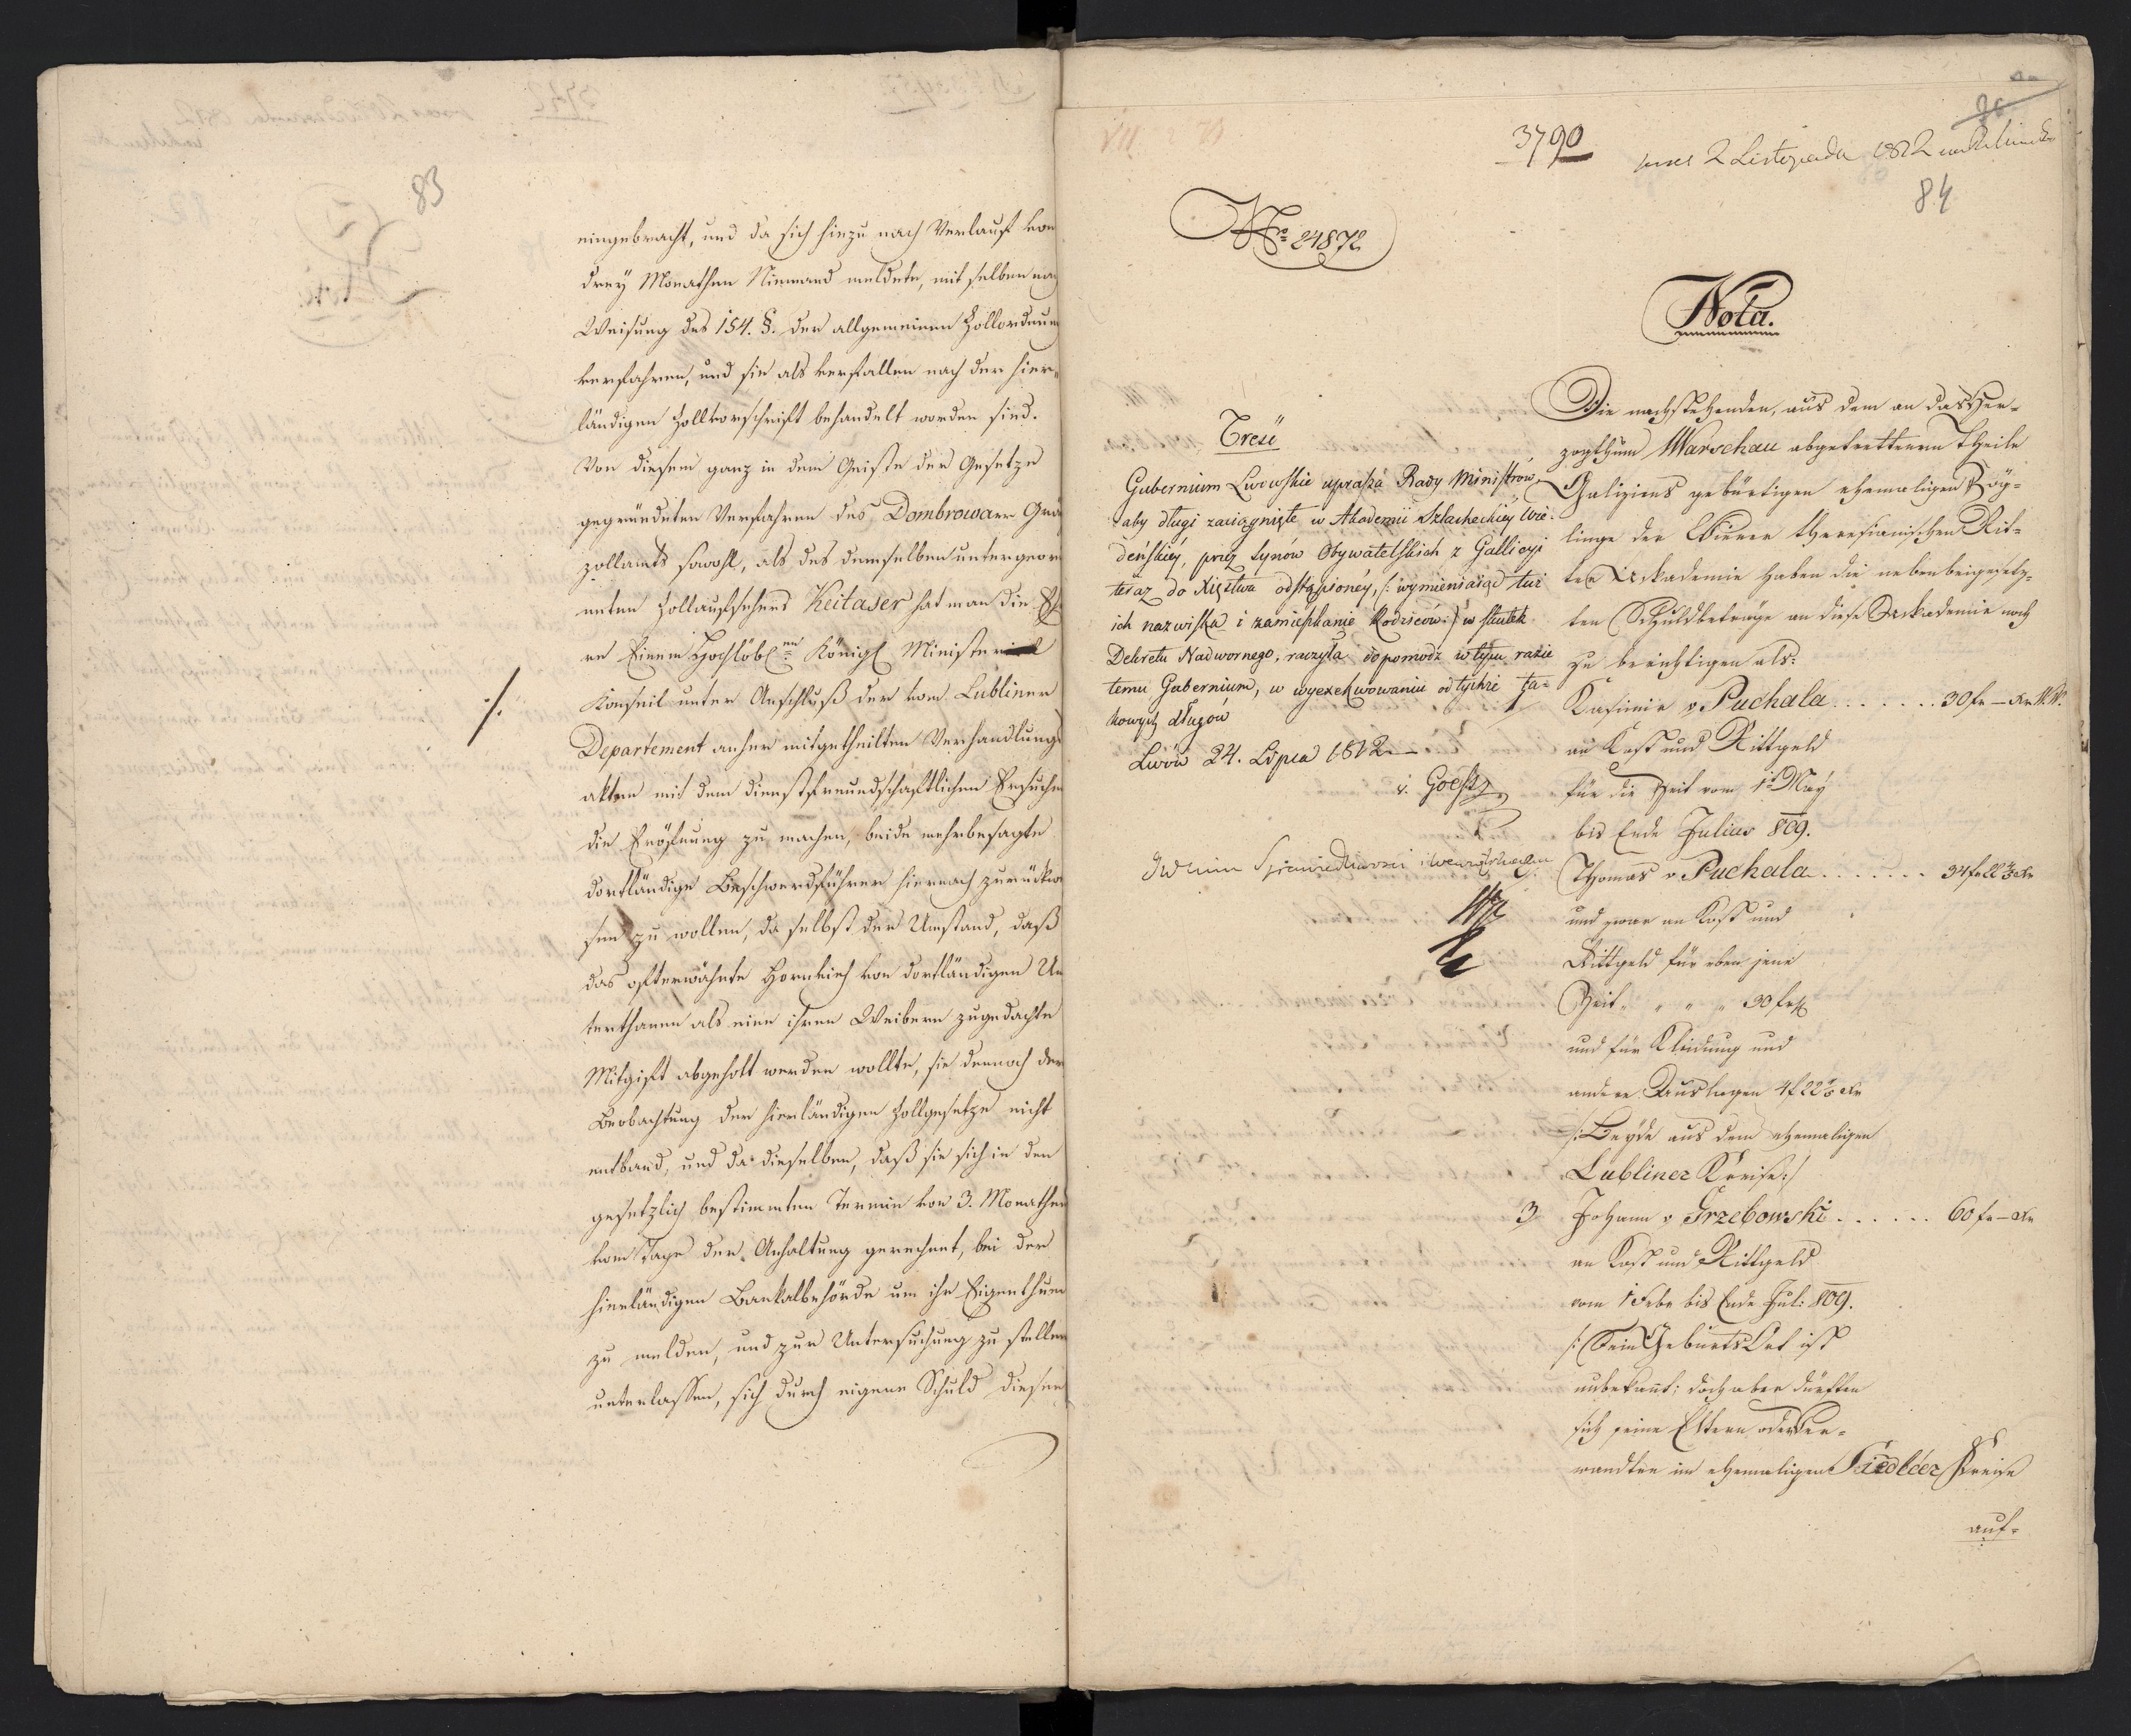 83
eingebracht, und da sich hiezu nach Verlauf von
drey Monathen Niemand meldete, mit selben nach
Weisung des 154. §. der allgemeinen Zollordnung
verfahren, und sie als verfallen nach der hier¬
ländigen Zollvorschrift behandelt worden sind.
Von diesem ganz in dem Geiste der Gesetze
gegründeten Verfahren des Dombrowaer Gränz
zollamts sowohl, als des demselben untergeord
neten Zollaufsehers Keitaser hat man die Eh
re Einem Hochlöbl: Königl Ministerial
./.
Konseil unter Anschluß der vom Lubliner
Departement anher mitgetheilten Verhandlungs
akten mit dem dienstfreundschaftlichen Ersuchen
die Eröfnung zu machen, beide mehrbesagte
dortländige Beschwerdführer hiernach zurückwei
sen zu wollen, da selbst der Umstand, daß
das ofterwähnte Hornvieh von dortländigen Un
terthanen als eine ihren Weibern zugedachte
Mitgift abgeholt werden wollte, sie dennoch der
Beobachtung der hierländigen Zollgesetze nicht
entband, und da dieselben, daß sie sich in den
gesetzlich bestimmten Termin von 3. Monathen
vom Tage der Anhaltung gerechnet, bei der
hierländigen Bankalbehörde um ihr Eigenthum
zu melden, und zur Untersuchung zu stellen
unterlassen, sich durch eigene Schuld diesen
3790
2 Listopada 1812
84
Nro 24872
Nota.
Treść
Gubernium Lwowskie uprasza Rady Ministrów,
aby długi zaciągnięte w Akademii Szlacheckiey Wie¬
deńskiey, przez Synów Obywatelskich z Gallicyi
teraz do Xięstwa odstąpioney, /: wymieniaiąc tuż
ich nazwiska i zamieszkanie Rodziców :/ w skutek
Dekretu Nadwornego, raczyła dopomodz w tym razie
temu Gubernium, w wyexekwowaniu od tychże ta¬
kowych długów
Lwów 24. Lipca 1812.
v. Goess
Sprawiedliwości
Die nachstehenden, aus dem an das Her¬
zogthum Warschau abgetrettenen Theile
Galiziens gebürtigen ehemaligen Zög¬
linge der Wiener Theresianischen Rit¬
ter Akademie haben die nebenbeigesetz¬
ten Schuldbeträge an diese Akademie noch
zu berichtigen als:
Kasimir v Puchala . . . . . . . 30 fr — Xr W. W.
an Kost und Kittgeld
für die Zeit vom 1t May
bis Ende Julius 809.
Thomas v Puchala . . . . . . . 34 fr 22 ⅔ Xr
und zwar an Kost und
Kittgeld für eben jene
Zeit „ „ „ „ 30 fr
und für Kleidung und
andere Auslagen 4 f 22 ⅔ Xr
/: Beyde aus dem ehemaligen
Lubliner Kreise :/
3 Johann v Grzebowski . . . . . . 60 fr — Xr
an Kost und Kittgeld
vom 1 Febr bis Ende Jul: 809.
/: Sein Geburts Ort ist
unbekannt; doch aber dürften
sich seine Eltern oder Ver¬
wandten im ehemaligen Siedlcer Kreise
auf¬